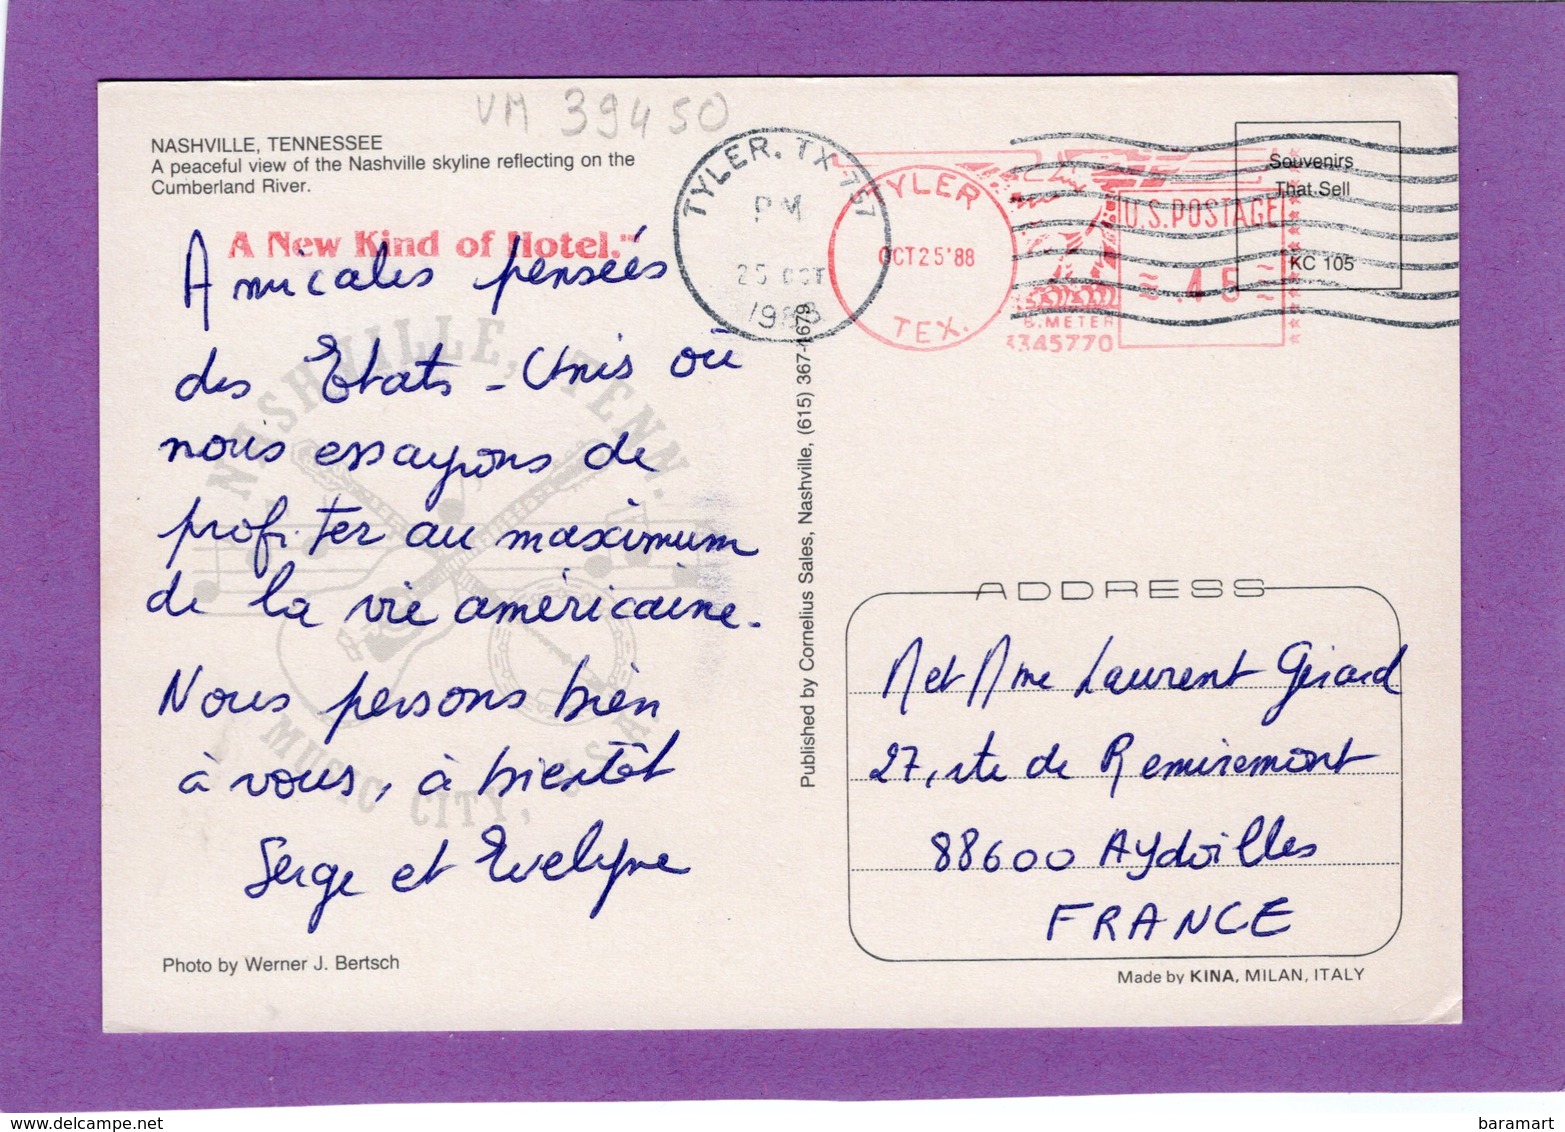 VM 39450
NASHVILLE, TENNESSEE
A peaceful view of the Nashville skyline reflecting on the
Cumberland River.
A New Kind of Hotel.™
Amicales pensées
des Etats-Unis où
nous essayons de
profiter au maximum
de la vie américaine.
Nous pensons bien
à vous, à bientôt
Serge et Evelyne
Photo by Werner J. Bertsch
NASHVILLE, TENN.
MUSIC CITY, U.S.A.
Published by Cornelius Sales, Nashville, (615) 367-1679
TYLER, TX 757
PM
25 OCT
1988
TYLER
OCT 25'88
TEX.
U.S. POSTAGE
≈ .45 ≈
B. METER
345770
Souvenirs
That Sell
KC 105
ADDRESS
M et Mme Laurent Gérard
27, rte de Remiremont
88600 Aydoilles
FRANCE
Made by KINA, MILAN, ITALY
baramart